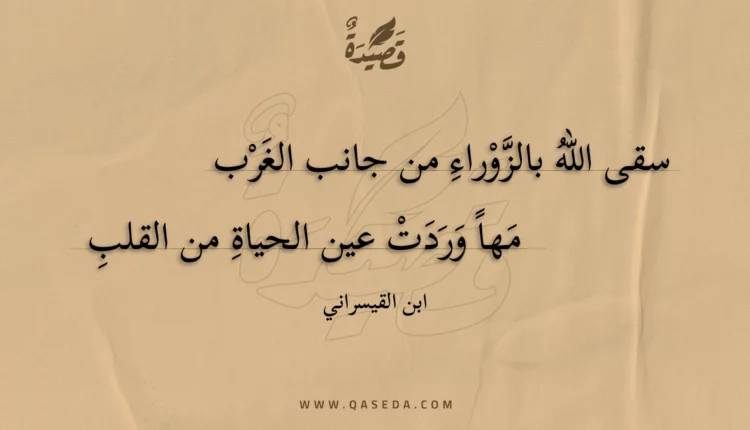 قَصِيْدَةٌ
سقى اللهُ بالزَّوْراءِ من جانب الغَرْب
مَهاً وَرَدَتْ عين الحياةِ من القلبِ
ابن القيسراني
WWW.QASEDA.COM